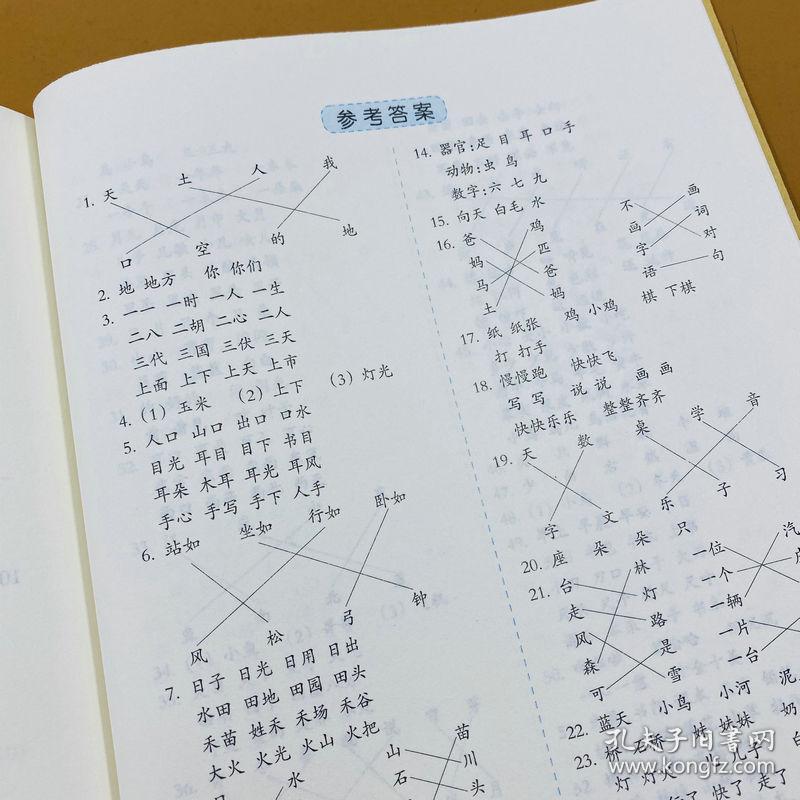 参考答案
1. 天 土 人 我
口 空 的 地
2. 地 地方 你 你们
3. 一一 一时 一人 一生
二八 二胡 二心 二人
三代 三国 三伏 三天
上面 上下 上天 上市
4. (1) 玉米 (2) 上下 (3) 灯光
5. 人口 山口 出口 口水
目光 耳目 目下 书目
耳朵 木耳 耳光 耳风
手心 手写 手下 人手
6. 站如 坐如 行如 卧如
风 松 弓 钟
7. 日子 日光 日用 日出
水田 田地 田园 田头
禾苗 姓禾 禾场 禾谷
大火 火光 火山 火把
水 山 苗
石 川
头
14. 器官:足 目 耳 口 手
动物:虫 鸟
数字:六 七 九
15. 向天 白毛 水
16. 爸 鸡 不 画
妈 匹 画 词
马 爸 字 对
土 妈 语 句
17. 纸 纸张 鸡 小鸡 棋 下棋
打 打手
18. 慢慢跑 快快飞
写 写 说 说 画 画
快快乐乐 整整齐齐
19. 天 数 桌 学 音
字 文 乐 子 习
20. 座 朵 朵 只
21. 台 林 一位 汽
走 灯 一个
风 路 一辆
森 是 一片
可 雪 一台
22. 蓝天 小鸟 小河 泥
23. 桥 妹妹 儿子 奶
灯 灯火 快了 走了
孔夫子旧书网
www.kongfz.com